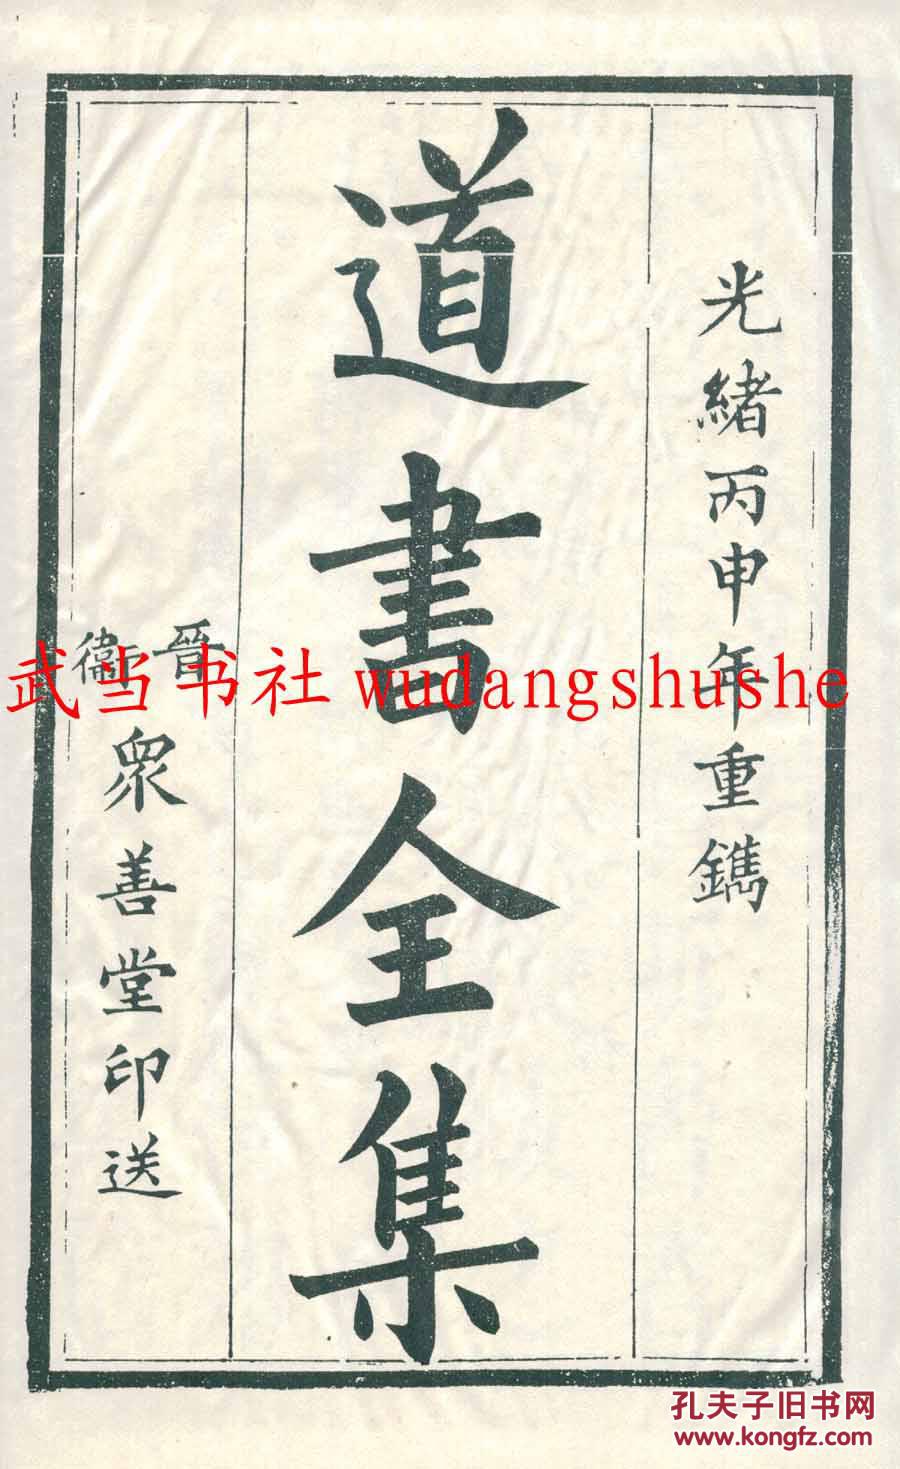 光緒丙申年重鐫
道書全集
晉衞
衆善堂印送
武当书社 wudangshushe
孔夫子旧书网
www.kongfz.com